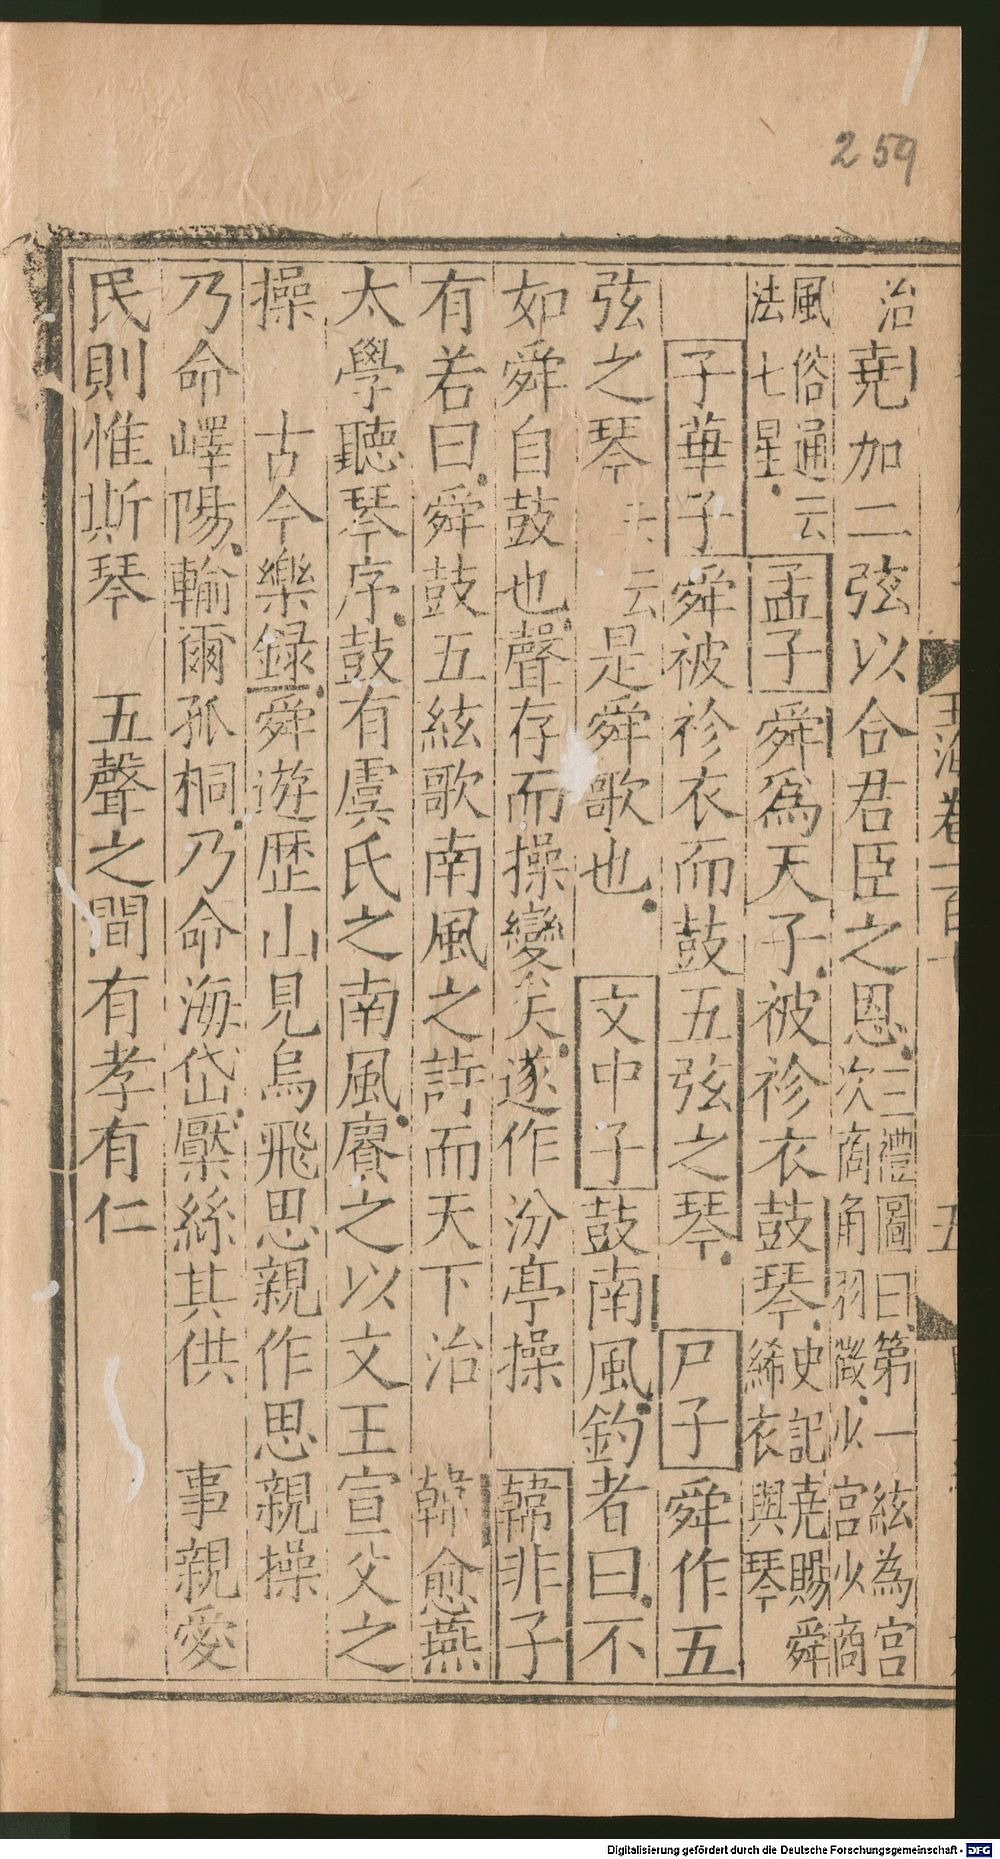 259
治堯加二弦以合君臣之恩三禮圖曰第一絃為宮
次商角羽徵少宮少商
風俗通云
法七星孟子舜為天子被袗衣鼓琴史記堯賜舜
絺衣與琴
子華子舜被袗衣而鼓五弦之琴 尸子舜作五
弦之琴 云是舜歌也 文中子鼓南風釣者曰不
如舜自鼓也聲存而操變矣遂作汾亭操 韓非子
有若曰舜鼓五絃歌南風之詩而天下治 韓愈燕
太學聽琴序鼓有虞氏之南風賡之以文王宣父之
操 古今樂録舜遊歷山見烏飛思親作思親操
乃命嶧陽輸爾孤桐乃命海岱檿絲其供 事親愛
民則惟斯琴 五聲之間有孝有仁
玉海卷一百十
五
Digitalisierung gefördert durch die Deutsche Forschungsgemeinschaft - DFG